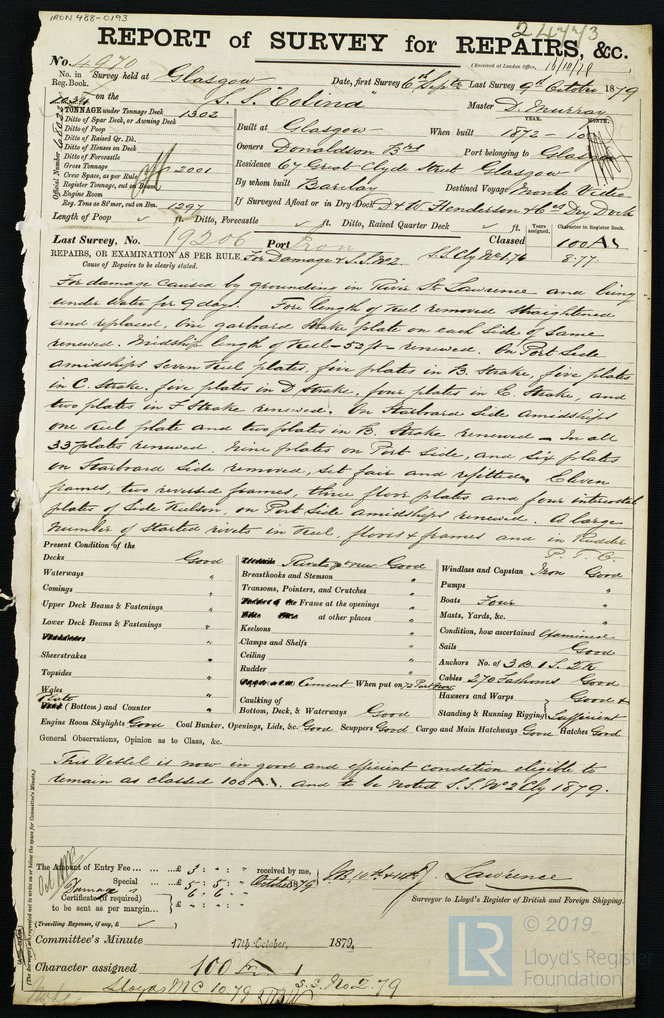 IRON 488-0193
24443
REPORT of SURVEY for REPAIRS, &c.
(Received at London Office, 16/10/79
No. 4970
No. in Reg. Book. Survey held at Glasgow Date, first Survey 6th Septr Last Survey 9th October 1879
on the S.S. "Colina" Master D. Murray
TONNAGE under Tonnage Deck 1302
Ditto of Spar Deck, or Awning Deck
Ditto of Poop
Ditto of Raised Qr. Dk.
Ditto of Houses on Deck
Ditto of Forecastle
Gross Tonnage 2001
Crew Space, as per Rule
Register Tonnage, out on Beam
Engine Room
Reg. Tons as St'mer, cut on Bm. 1297
Official Number
YEAR. MONTH.
Built at Glasgow When built 1872-10
Owners Donaldson Brs Port belonging to Glasgow
Residence 67 Great Clyde Street Glasgow
By whom built Barclay Destined Voyage Monte Video
If Surveyed Afloat or in Dry Dock D & W Henderson & Cos Dry Dock
Length of Poop ft. Ditto, Forecastle ft. Ditto, Raised Quarter Deck ft. Years assigned. Character in Register Book.
Last Survey, No. 19206 Port Classed 100A1
REPAIRS, OR EXAMINATION AS PER RULE For Damage & S.S. No2 S.S. Cly No1.76 8.77
Cause of Repairs to be clearly stated.
For damage caused by grounding in River St. Lawrence and being
under water for 9 days. Fore length of Keel removed straightened
and replaced, One garboard Strake plate on each side of same
renewed. Midship length of Keel - 53 ft - renewed. On Port Side
amidships Seven Keel plates, five plates in B. Strake, five plates
in C. Strake, five plates in D Strake, four plates in E. Strake, and
two plates in F Strake renewed. On Starboard Side amidships
one Keel plate and two plates in B. Strake renewed - In all
33 plates renewed. Nine plates on Port Side, and six plates
on Starboard Side removed, set fair and refitted. Eleven
frames, two reversed frames, three floor plates and four intercostal
plates of Side Keelson, on Port Side amidships renewed. A large
number of started rivets in Keel, floors & frames and in Rudder
P.T.O.
Present Condition of the
Decks Good
Waterways "
Comings "
Upper Deck Beams & Fastenings "
Lower Deck Beams & Fastenings "
Sheerstrakes "
Topsides "
Wales "
Plate (Bottom) and Counter "
Rivets new Good
Breasthooks and Stemson "
Transoms, Pointers, and Crutches "
Frame at the openings "
at other places "
Keelsons "
Clamps and Shelfs "
Ceiling "
Rudder "
Cement When put on
Caulking of
Bottom, Deck, & Waterways Good
Windlass and Capstan Iron Good
Pumps "
Boats Four "
Masts, Yards, &c. "
Condition, how ascertained Examined
Sails Good
Anchors No. of 3 B. 1 S. 2 K
Cables 270 Fathoms Good
Hawsers and Warps Good &
Standing & Running Rigging Sufficient
Engine Room Skylights Good Coal Bunker, Openings, Lids, &c. Good Scuppers Good Cargo and Main Hatchways Good Hatches Good
General Observations, Opinion as to Class, &c.
This Vessel is now in good and efficient condition eligible to
remain as classed 100 A.1. and to be noted S.S. No 2 Cly 1879.
The Amount of Entry Fee ... £ 3 : " : " received by me,
Special ... £ 5 : 5 : " October 1879
Damage 6 : 6 : "
Certificate (if required) ... £ " : " : "
to be sent as per margin...
(Travelling Expenses, if any, £
J. Lawrence
Surveyor to Lloyd's Register of British and Foreign Shipping.
Committee's Minute 17th October, 1879.
Character assigned 100 A 1
Lloyds MC 10.79 S.S. No 2.79
© 2019
LR
Lloyd's Register
Foundation